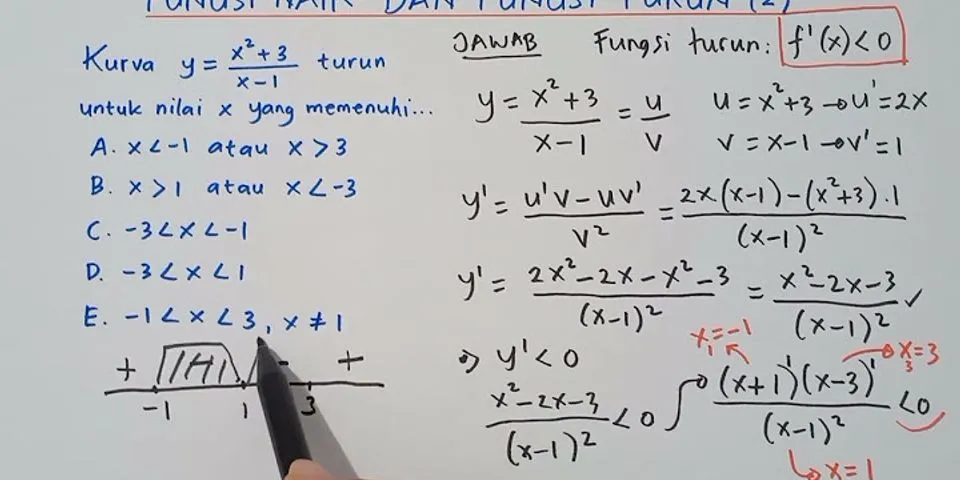 FUNGSI NAIK DAN FUNGSI TURUN (2)
Kurva y = (x²+3)/(x-1) turun
untuk nilai x yang memenuhi...
A. x < -1 atau x > 3
B. x > 1 atau x < -3
C. -3 < x < -1
D. -3 < x < 1
E. -1 < x < 3, x ≠ 1
+ - +
-1 1 3
JAWAB Fungsi turun: f'(x) < 0
y = (x²+3)/(x-1) = u/v
u = x²+3 → u' = 2x
v = x-1 → v' = 1
y' = (u'v - uv')/v² = (2x(x-1) - (x²+3).1)/(x-1)²
y' = (2x²-2x-x²-3)/(x-1)² = (x²-2x-3)/(x-1)² ✓
⇒ y' < 0
(x²-2x-3)/(x-1)² < 0 → (x+1)¹(x-3)¹/(x-1)² < 0
x₁ = -1
x₃ = 3
x = 1